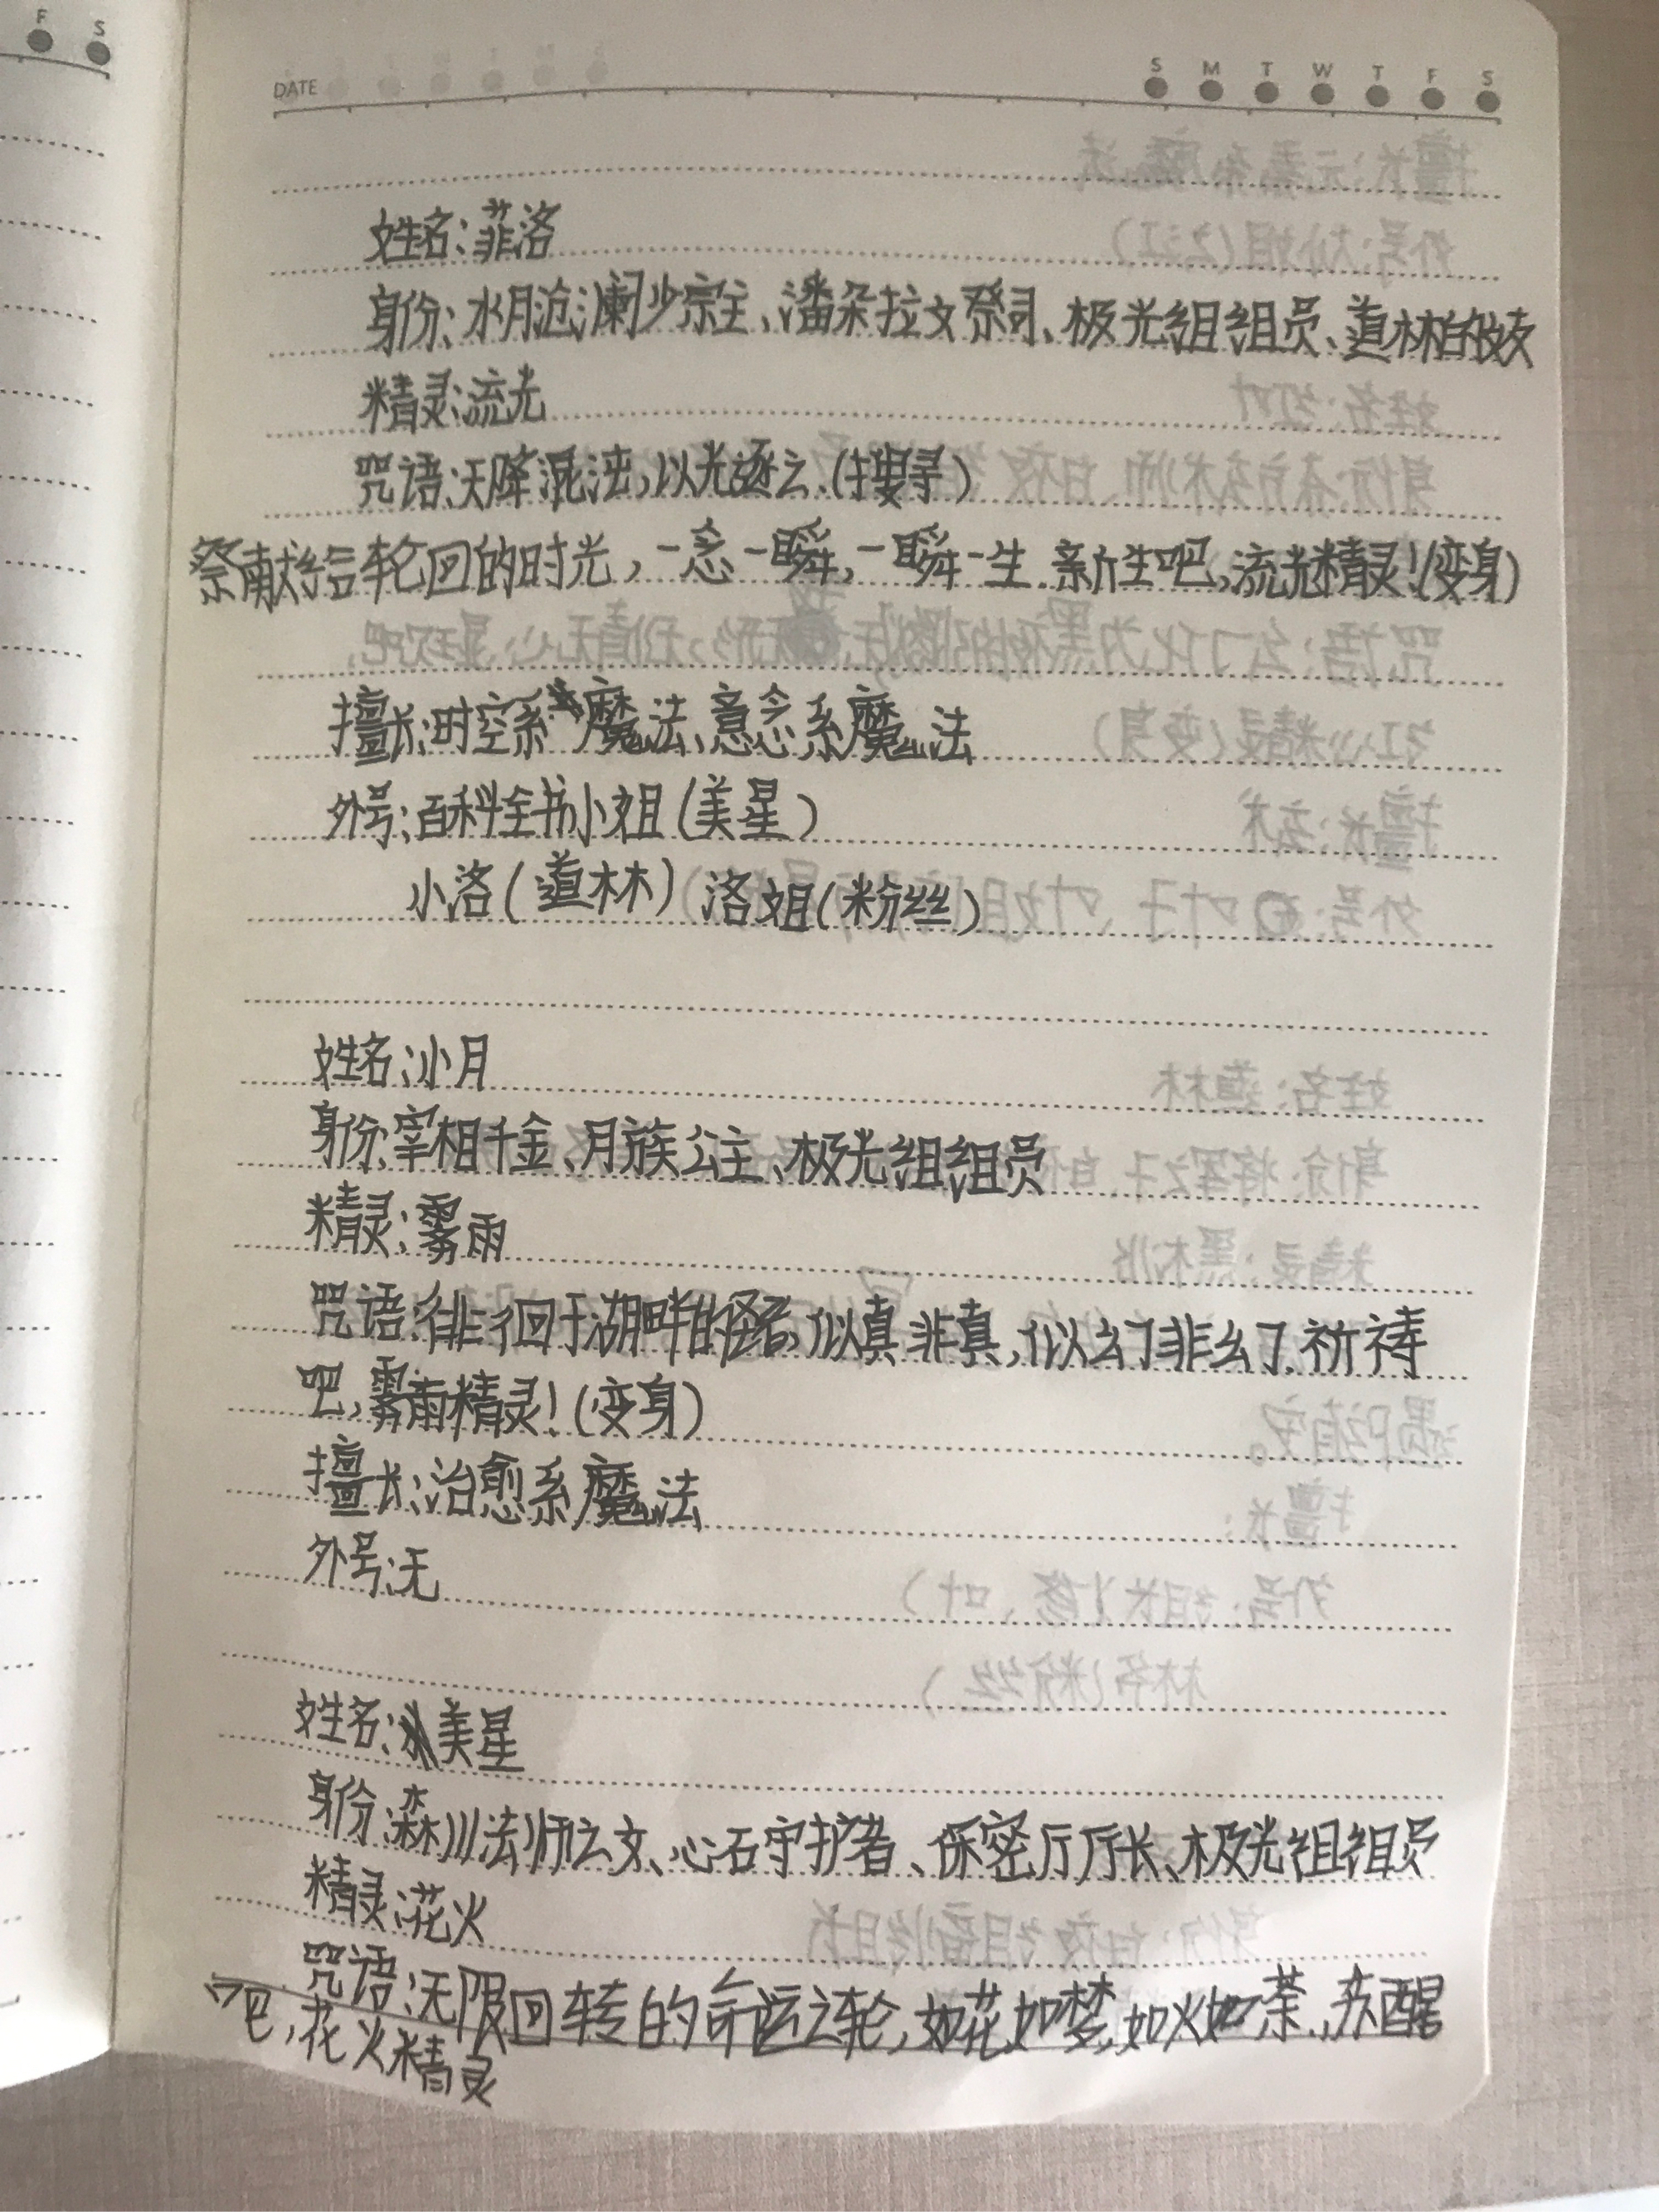 DATE
S M T W T F S
F S
姓名:菲洛
身份:水月沧澜少宗主、潘朵拉文祭司、极光组组员、道林的女友
精灵:流光
咒语:天降混沌,以光逐云.(搜寻)
祭献给轮回的时光,一念一瞬,一瞬一生.新生吧,流光精灵!(变身)
擅长:时空系魔法、意念系魔法
外号:百科全书小姐(美星)
小洛(道林) 洛姐(粉丝)
姓名:小月
身份:宰相千金、月族公主、极光组组员
精灵:雾雨
咒语:徘徊于湖畔的怪客,似真非真,似幻非幻.祈祷
吧,雾雨精灵!(变身)
擅长:治愈系魔法
外号:无
姓名:美星
身份:森川法师之女、心石守护者、保密厅厅长、极光组组员
精灵:花火
咒语:无限回转的命运之轮,如花如梦,如火如荼.苏醒
吧,花火精灵